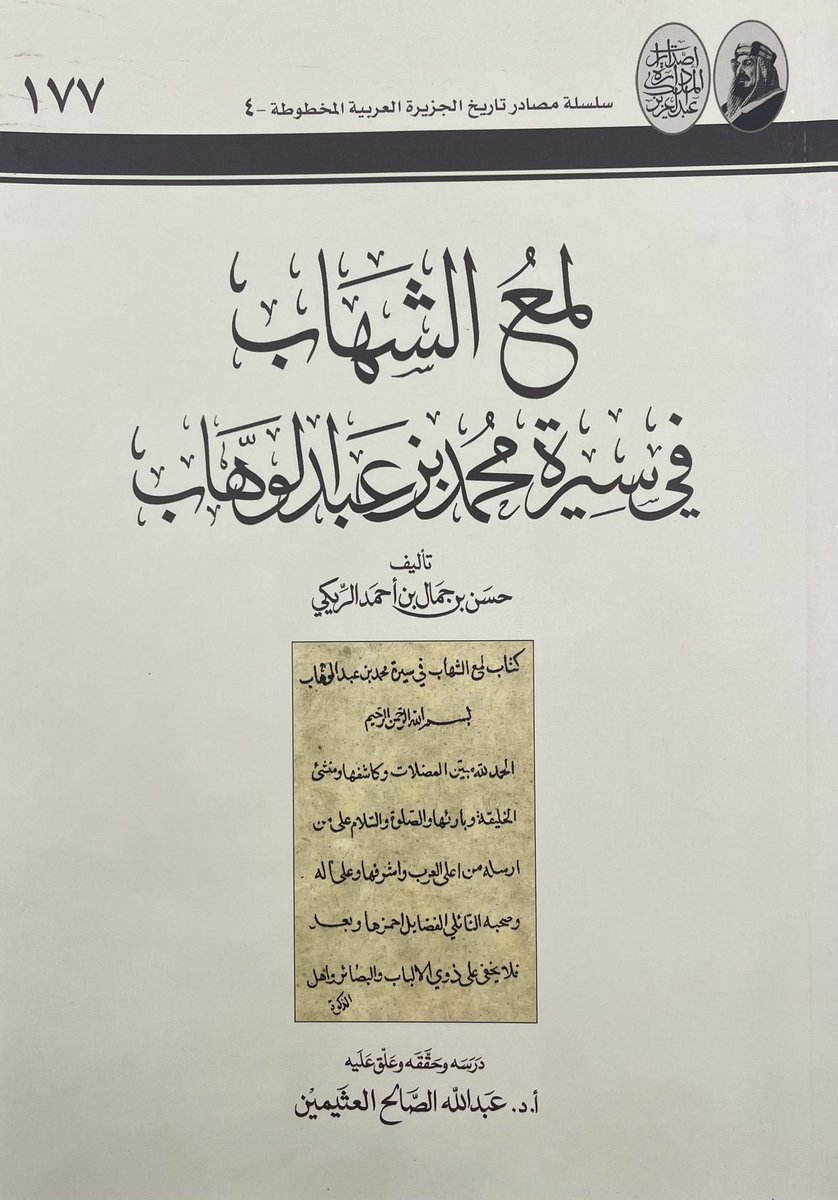 ١٧٧
سلسلة مصادر تاريخ الجزيرة العربية المخطوطة -٤
إصدارات
الدارة
الملك
عبدالعزيز
لمعُ الشهَاب
في سِيرة محُمد بن عَبدالوهَّاب
تأليف
حسَن بن جمَال بن أحمَد الرِّيكي
كتاب لمع الشهاب في سيرة محمد بن عبد الوهاب
بسم الله الرحمن الرحيم
الحمد لله مبيّن المعضلات وكاشفها ومنشئ
الخليقة وبارئها والصلوة والسلام على من
ارسله من اعلى العرب واشرفها وعلى آله
وصحبه النائلي الفضايل احمزها وبعد
فلا يخفى على ذوي الالباب والبصائر واهل
الذكرة
دَرَسَه وحَقَّقَه وعَلّق عَلَيه
أ.د. عَبدالله الصَّالح العثَيمين